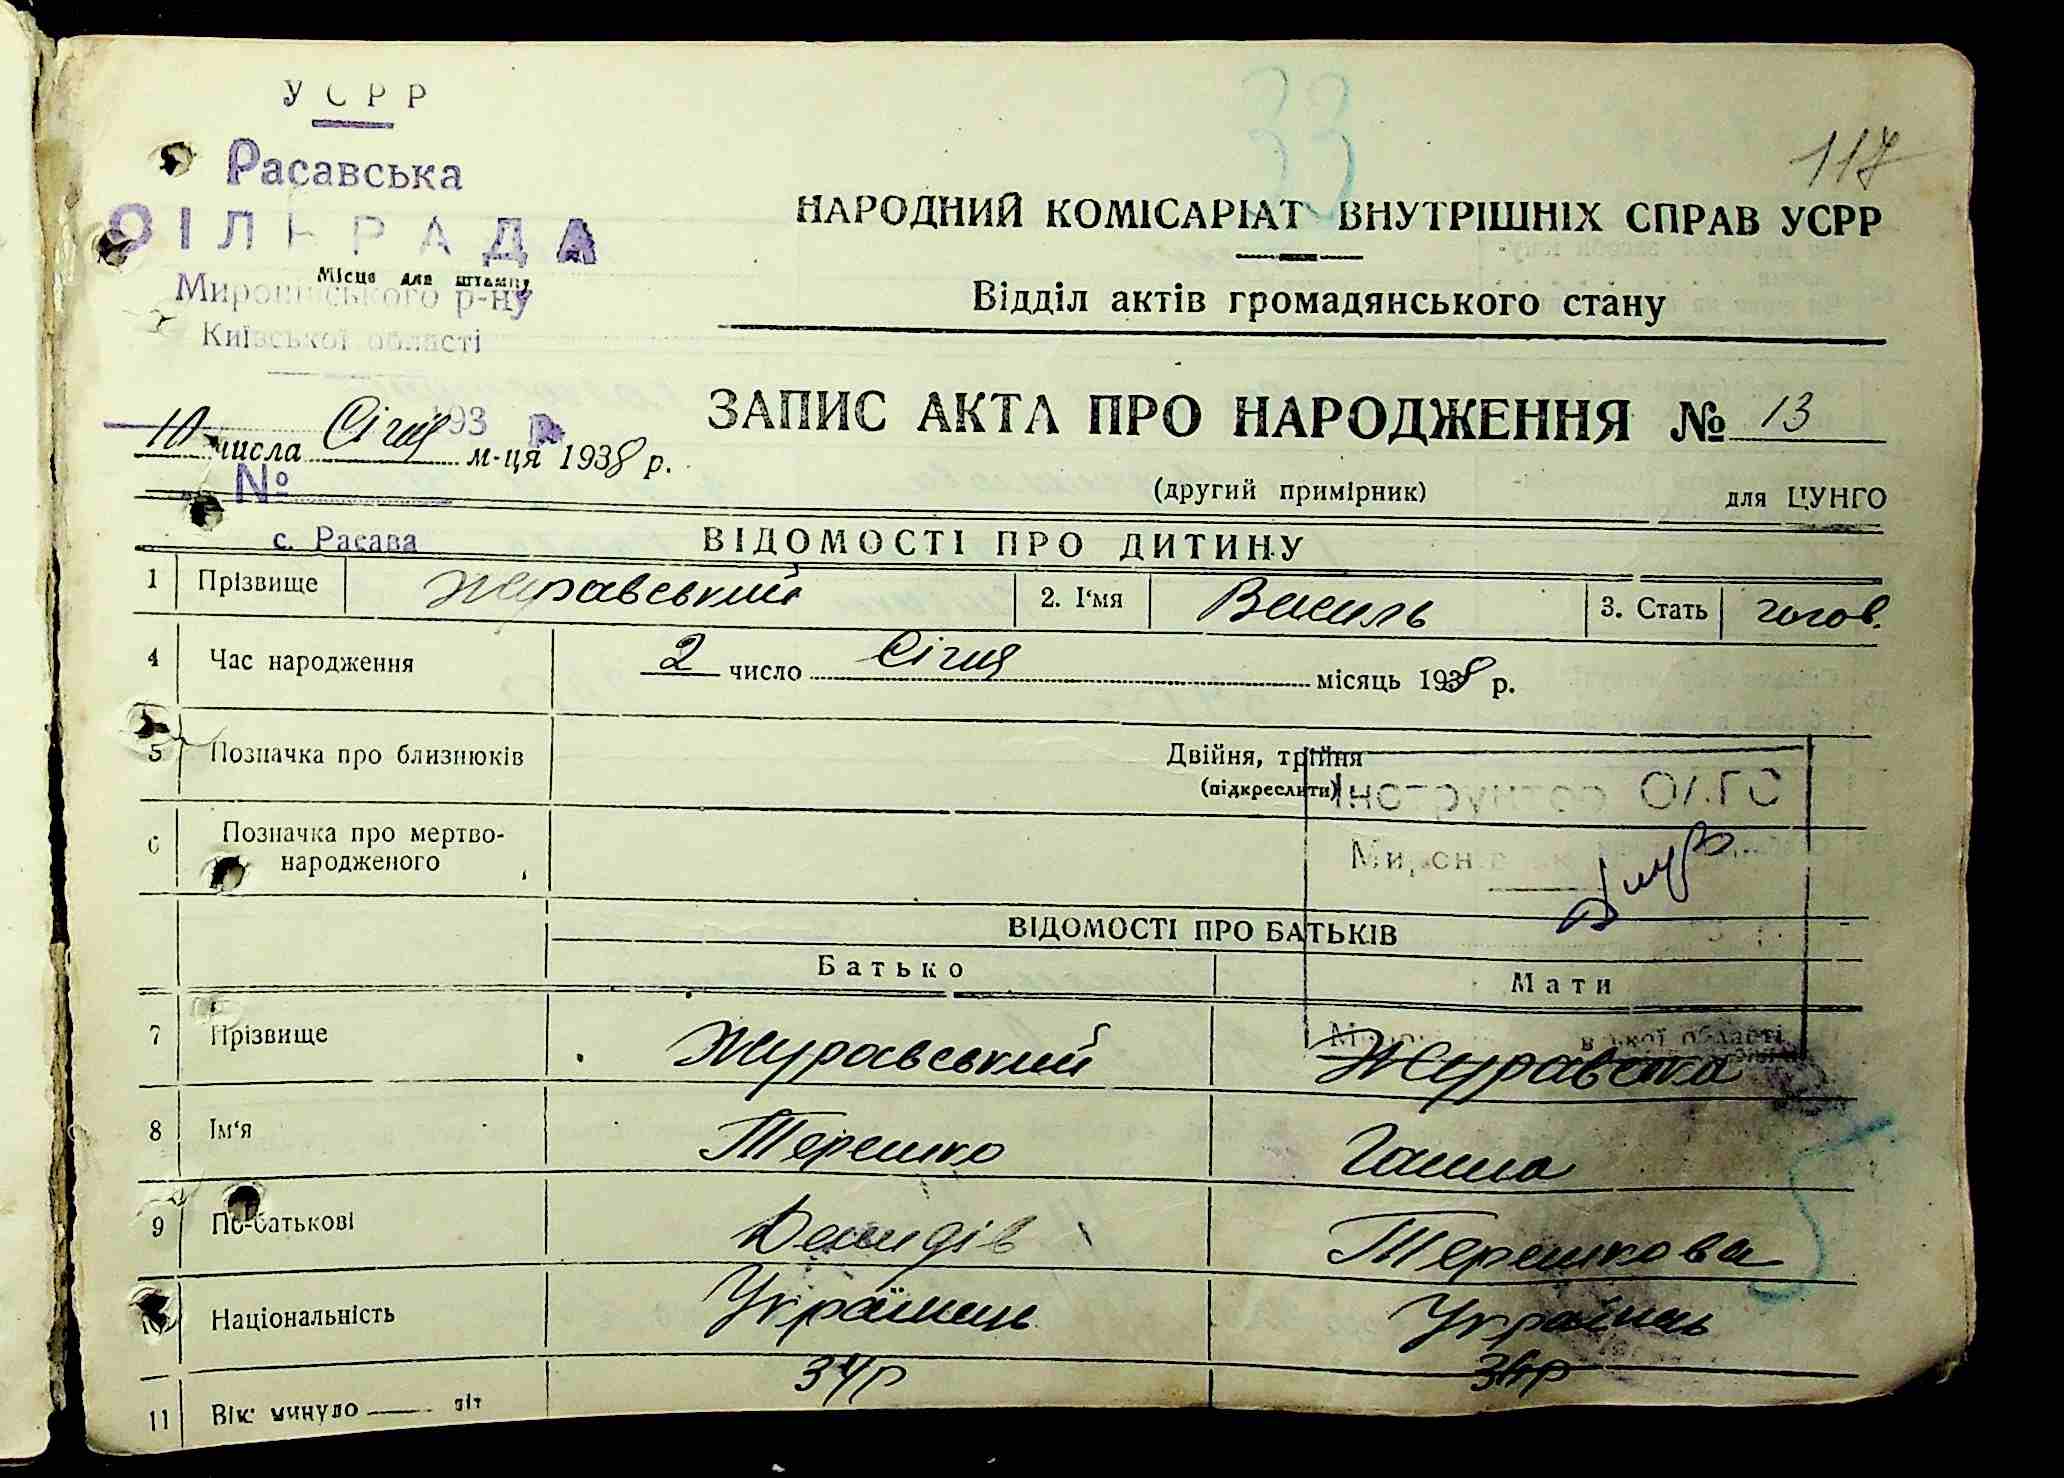 УСРР
Расавська
СІЛЬРАДА
Місце для штампу
Миронівського р-ну
Київської області
193 р.
33
117
НАРОДНИЙ КОМІСАРІАТ ВНУТРІШНІХ СПРАВ УСРР
Відділ актів громадянського стану
10 числа Січня м-ця 1938 р.
ЗАПИС АКТА ПРО НАРОДЖЕННЯ № 13
№
(другий примірник) для ЦУНГО
с. Расава
ВІДОМОСТІ ПРО ДИТИНУ
1 Прізвище Журавський 2. І'мя Василь 3. Стать чолов.
4 Час народження 2 число Січня місяць 1938 р.
5 Позначка про близнюків Двійня, трійня
(підкреслити)
Інструктор ОАГС
6 Позначка про мертво-
народженого
ВІДОМОСТІ ПРО БАТЬКІВ
Батько Мати
області
7 Прізвище Журавський Журавська
8 Ім'я Терешко Ганна
9 По-батькові Демидів Терешкова
10 Національність Українець Українець
11 Вік: минуло літ 34р 34р